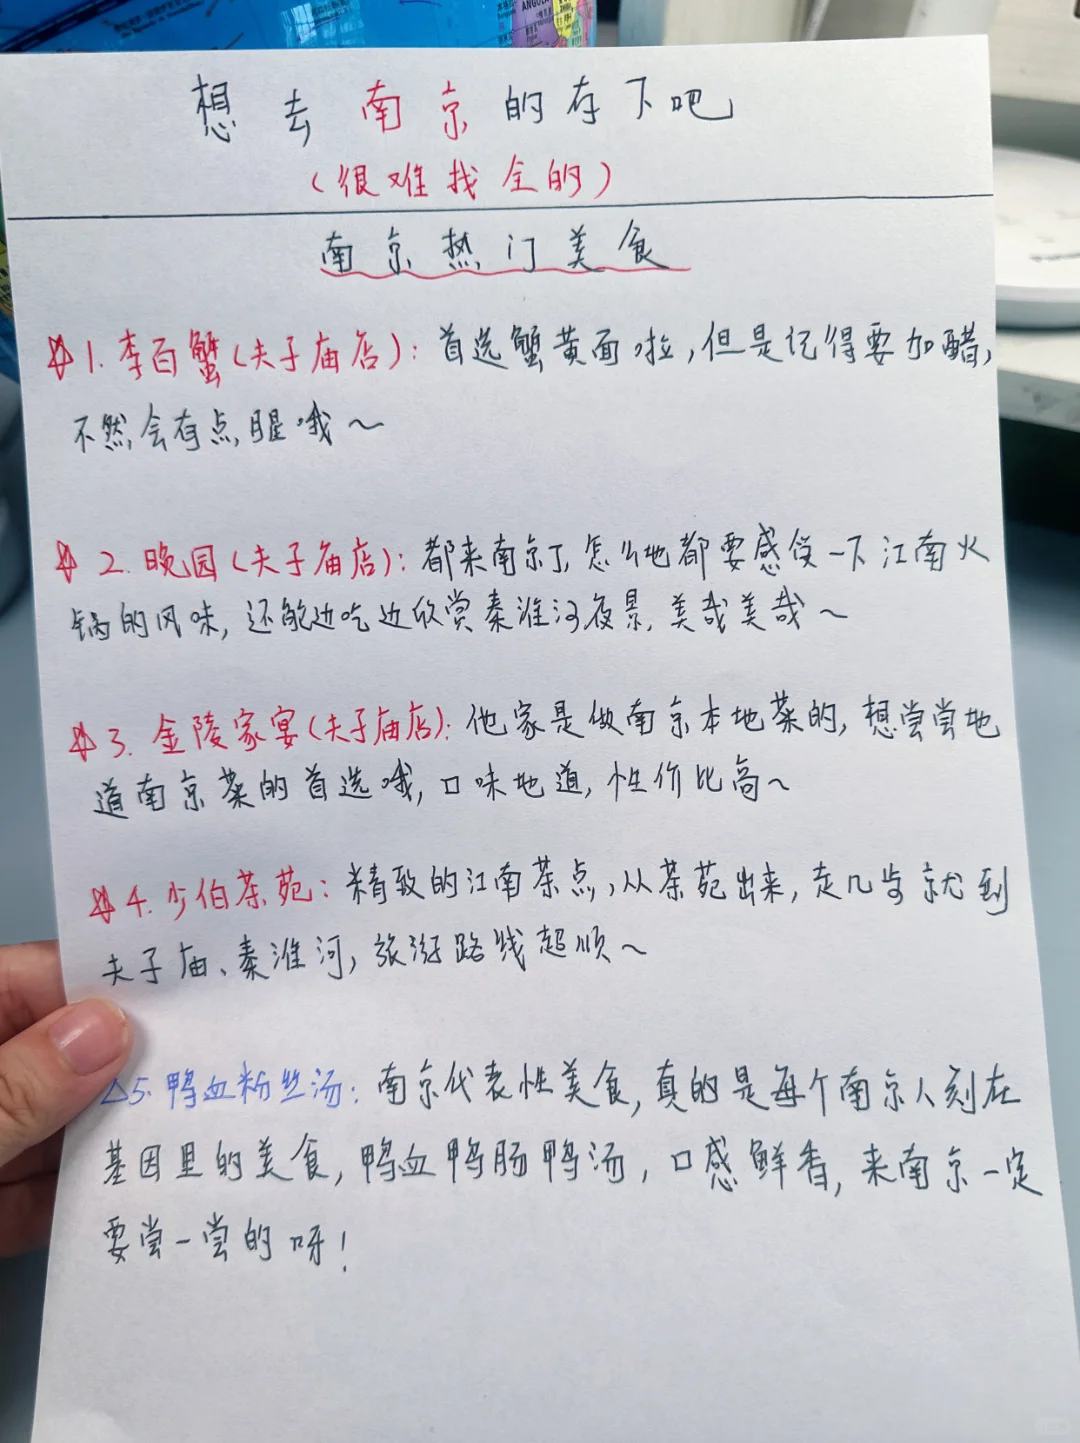 ANGOLA
想去南京的存下吧
(很难找全的)
南京热门美食
1.李百蟹(夫子庙店):首选蟹黄面啦,但是记得要加醋,
不然会有点腥哦~
2.晚园(夫子庙店):都来南京了,怎么地都要感受一下江南火
锅的风味,还能边吃边欣赏秦淮河夜景,美哉美哉~
3.金陵家宴(夫子庙店):他家是做南京本地菜的,想尝尝地
道南京菜的首选哦,口味地道,性价比高~
4.少伯茶苑:精致的江南茶点,从茶苑出来,走几步就到
夫子庙、秦淮河,旅游路线超顺~
△5.鸭血粉丝汤:南京代表性美食,真的是每个南京人刻在
基因里的美食,鸭血鸭肠鸭汤,口感鲜香,来南京一定
要尝一尝的呀!